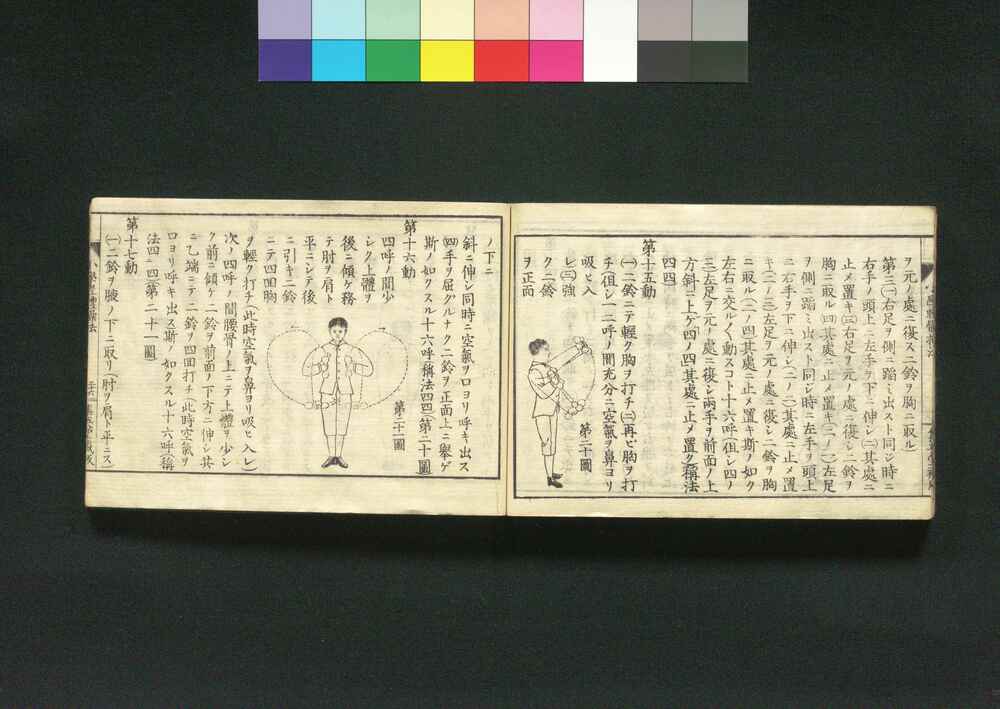 ヲ元ノ處ニ復ス二鈴ヲ胸ニ取ル)
第二(一)右足ヲ側ニ蹈ミ出スト同シ時ニ
右手ノ頭上ニ左手ヲ下ニ伸シ(二)其處ニ
止メ置キ(三)右足ヲ元ノ處ニ復シ二鈴ヲ
胸ニ取ル(四)其處ニ止メ置キ(二ノ一)左足
ヲ側ニ蹈ミ出スト同シ時ニ左手ヲ頭上
ニ右手ヲ下ニ伸シ(二ノ二)其處ニ止メ置
キ(二ノ三)左足ヲ元ノ處ニ復シ二鈴ヲ胸
ニ取ル(二ノ四)其處ニ止メ置キ斯ノ如ク
左右ニ交ル〱動スコト十六呼(但シ四ノ
三ニ左足ヲ元ノ處ニ復シ兩手ヲ前面ノ上
方斜ニ上ゲ(四ノ四)其處ニ止メ置ク(稱法
四四)
第十五動
(一)二鈴ニテ輕ク胸ヲ打チ(二)再ビ胸ヲ打
チ(但シ一二呼ノ間充分ニ空氣ヲ鼻ヨリ
吸ヒ入
レ(三)強
ク二鈴
ヲ正面
第二十圖
ノ下ニ
斜ニ伸シ同時ニ空氣ヲ口ヨリ呼キ出ス
(四)手ヲ屈グルナク二鈴ヲ正面上ニ擧ゲ
斯ノ如クスル十六呼稱法四四(第二十圖
第十六動
四呼ノ間少
シク上體ヲ
後ニ傾ケ務
テ肘ヲ肩ト
平ニシテ後
ニ引キ二鈴
ニテ四回胸
第二十一圖
ヲ輕ク打チ(此時空氣ヲ鼻ヨリ吸ヒ入レ)
次ノ四呼ノ間腰骨ノ上ニテ上體ヲ少シ
ク前ニ傾ケ二鈴ヲ前面ノ下方ニ伸シ其
ニ乙端ニテ二鈴ヲ四回打チ(此時空氣ヲ
口ヨリ呼キ出ス)斯ノ如クスル十六呼(稱
法四ニ四(第二十一圖
第十七動
(一)二鈴ヲ腋ノ下ニ取リ(肘ヲ肩ト平ニス)